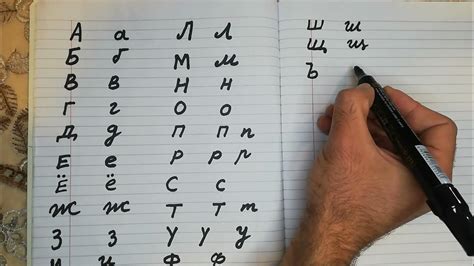 А а
Б б
В в
Г г
Д д
Е е
Ё ё
Ж ж
З з
И и
Л л
М м
Н н
О о
П п п
Р р р
С с
Т т т
У у у
Ф ф
Ш ш
Щ щ
Ъ